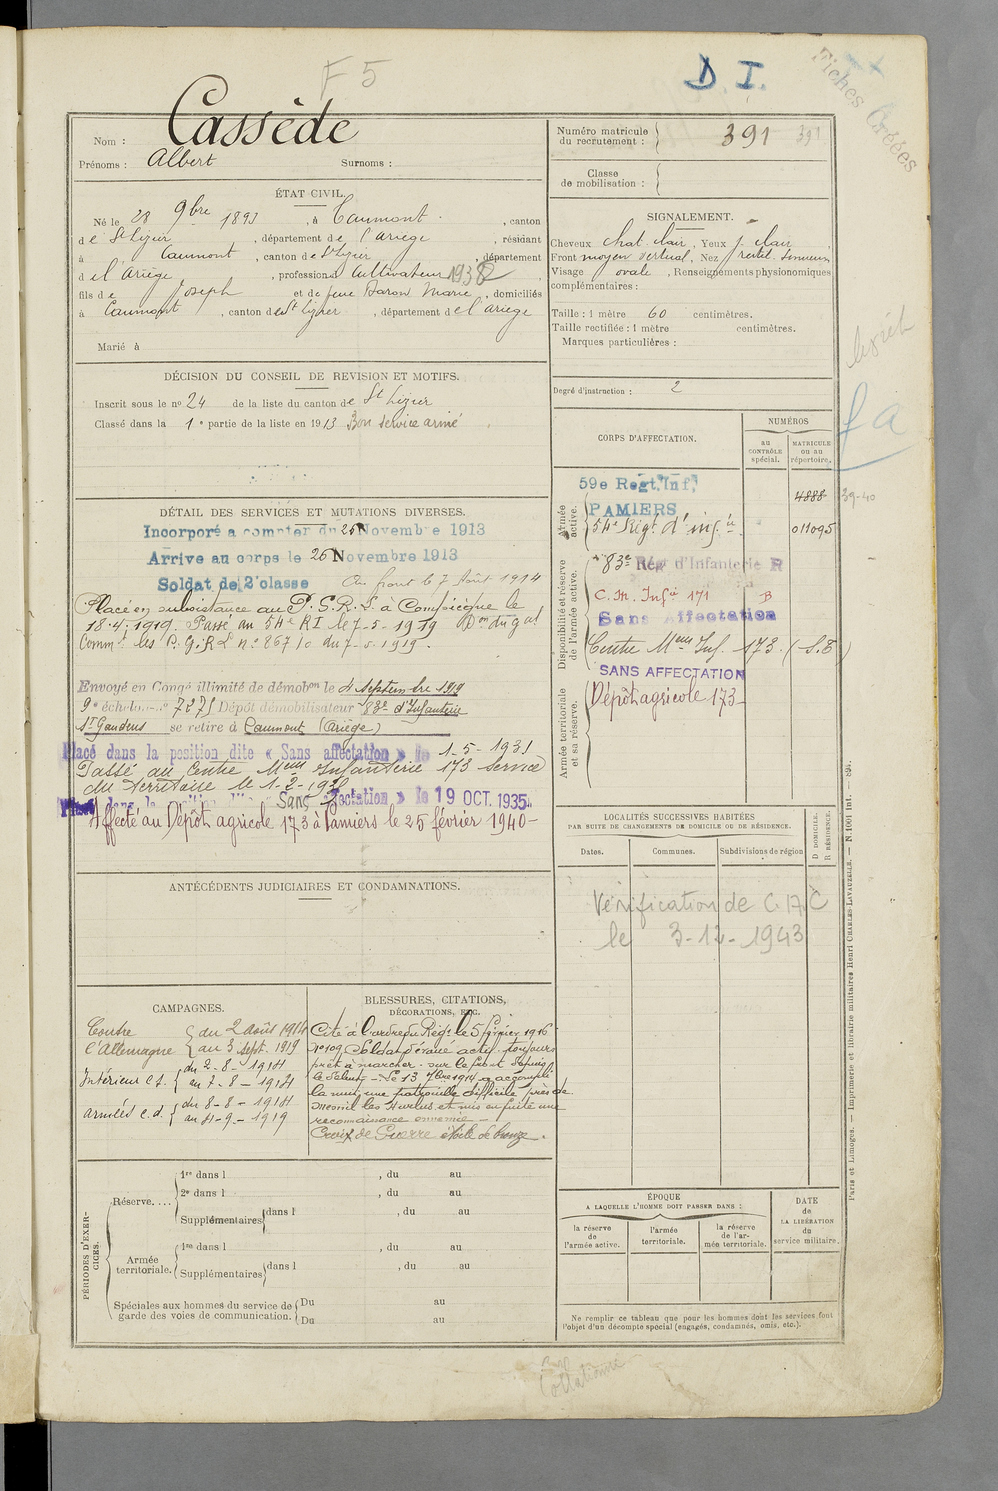 F 5
D. I.
Fiches Créées
Nom : Cassède
Prénoms : Albert Surnoms :
Numéro matricule du recrutement : 391 391
Classe de mobilisation :
ÉTAT CIVIL.
Né le 28 9bre 1893, à Caumont, canton
de St Lizier, département de l'Ariège, résidant
à Caumont, canton de St Lizier, département
de l'Ariège, profession d Cultivateur 1938
fils de Joseph et de feue Baron Marie, domiciliés
à Caumont, canton de St Lizier, département de l'Ariège
Marié à
SIGNALEMENT.
Cheveux chat. clair, Yeux j. clair,
Front moyen vertical, Nez rectil.
Visage ovale, Renseignements physionomiques
complémentaires :
Taille : 1 mètre 60 centimètres.
Taille rectifiée : 1 mètre centimètres.
Marques particulières :
Degré d'instruction : 2
DÉCISION DU CONSEIL DE REVISION ET MOTIFS.
Inscrit sous le no 24 de la liste du canton de St Lizier
Classé dans la 1e partie de la liste en 1913 Bon service armé
DÉTAIL DES SERVICES ET MUTATIONS DIVERSES.
Incorporé a compter du 26 Novembre 1913
Arrive au corps le 26 Novembre 1913
Soldat de 2e classe Au front le 7 Août 1914
Placé en subsistance au P.G.R.L. à Compiègne le
18.4.1919. Passé au 54e RI le 7-5-1919 Don du Gal
Commt les P.G.R.L no 8671 du 7-5-1919.
Envoyé en Congé illimité de démobon le 4 septembre 1919
9e échelon no Dépôt démobilisateur 83e d'Infanterie
St Gaudens se retire à Caumont (Ariège)
Placé dans la position dite « Sans affectation » le 1-5-1931
Passé au Centre Meur Infanterie 173 Service
du Territoire le 1-2-
Placé dans la position dite « Sans affectation » le 19 OCT. 1935.
Affecté au Dépôt agricole 173 à Pamiers le 25 février 1940-
CORPS D'AFFECTATION.
NUMÉROS
au CONTRÔLE spécial.
MATRICULE ou au répertoire.
Armée active.
59e Regt. Inf.
PAMIERS 4888 39-40
54e Régt d'infie 011095
Disponibilité et réserve de l'armée active.
83e Rég d'Infanterie R
C. M. Infie 171 B
Sans Affectation
Centre Meur Inf. 173. (S.T)
SANS AFFECTATION
Armée territoriale et sa réserve.
Dépôt agricole 173-
LOCALITÉS SUCCESSIVES HABITÉES
PAR SUITE DE CHANGEMENTS DE DOMICILE OU DE RÉSIDENCE.
Dates. Communes. Subdivisions de région
D DOMICILE.
R RÉSIDENCE.
Vérification de C.A.C
le 3-12-1943
ANTÉCÉDENTS JUDICIAIRES ET CONDAMNATIONS.
CAMPAGNES.
Contre l'Allemagne du 2 août 1914 au 3 sept. 1919
Intérieur c.s. du 2-8-1914 au 7-8-1914
Armées c.d. du 8-8-1914 au 4-9-1919
BLESSURES, CITATIONS,
DÉCORATIONS, ETC.
Cité à l'ordre du Régt le 5 février 1916
no 109 Soldat dévoué actif toujours
prêt à marcher. sur le front depuis
le début - Le 13 7bre 1914 a accompli
la nuit une patrouille difficile près de
Mesnil les Hurlus et mis en fuite une
reconnaissance ennemie -
Croix de Guerre étoile de bronze.
PÉRIODES D'EXERCICES.
Réserve....
1re dans l , du au
2e dans l , du au
Supplémentaires dans l , du au
Armée territoriale.
1re dans l , du au
Supplémentaires dans l , du au
Spéciales aux hommes du service de garde des voies de communication. Du au
Du au
ÉPOQUE
A LAQUELLE L'HOMME DOIT PASSER DANS :
la réserve de l'armée active.
l'armée territoriale.
la réserve de l'armée territoriale.
DATE de LA LIBÉRATION du service militaire.
Ne remplir ce tableau que pour les hommes dont les services font
l'objet d'un décompte spécial (engagés, condamnés, omis, etc.).
Paris et Limoges. — Imprimerie et librairie militaires Henri CHARLES-LAVAUZELLE. — N. 1001 int.
Collationné